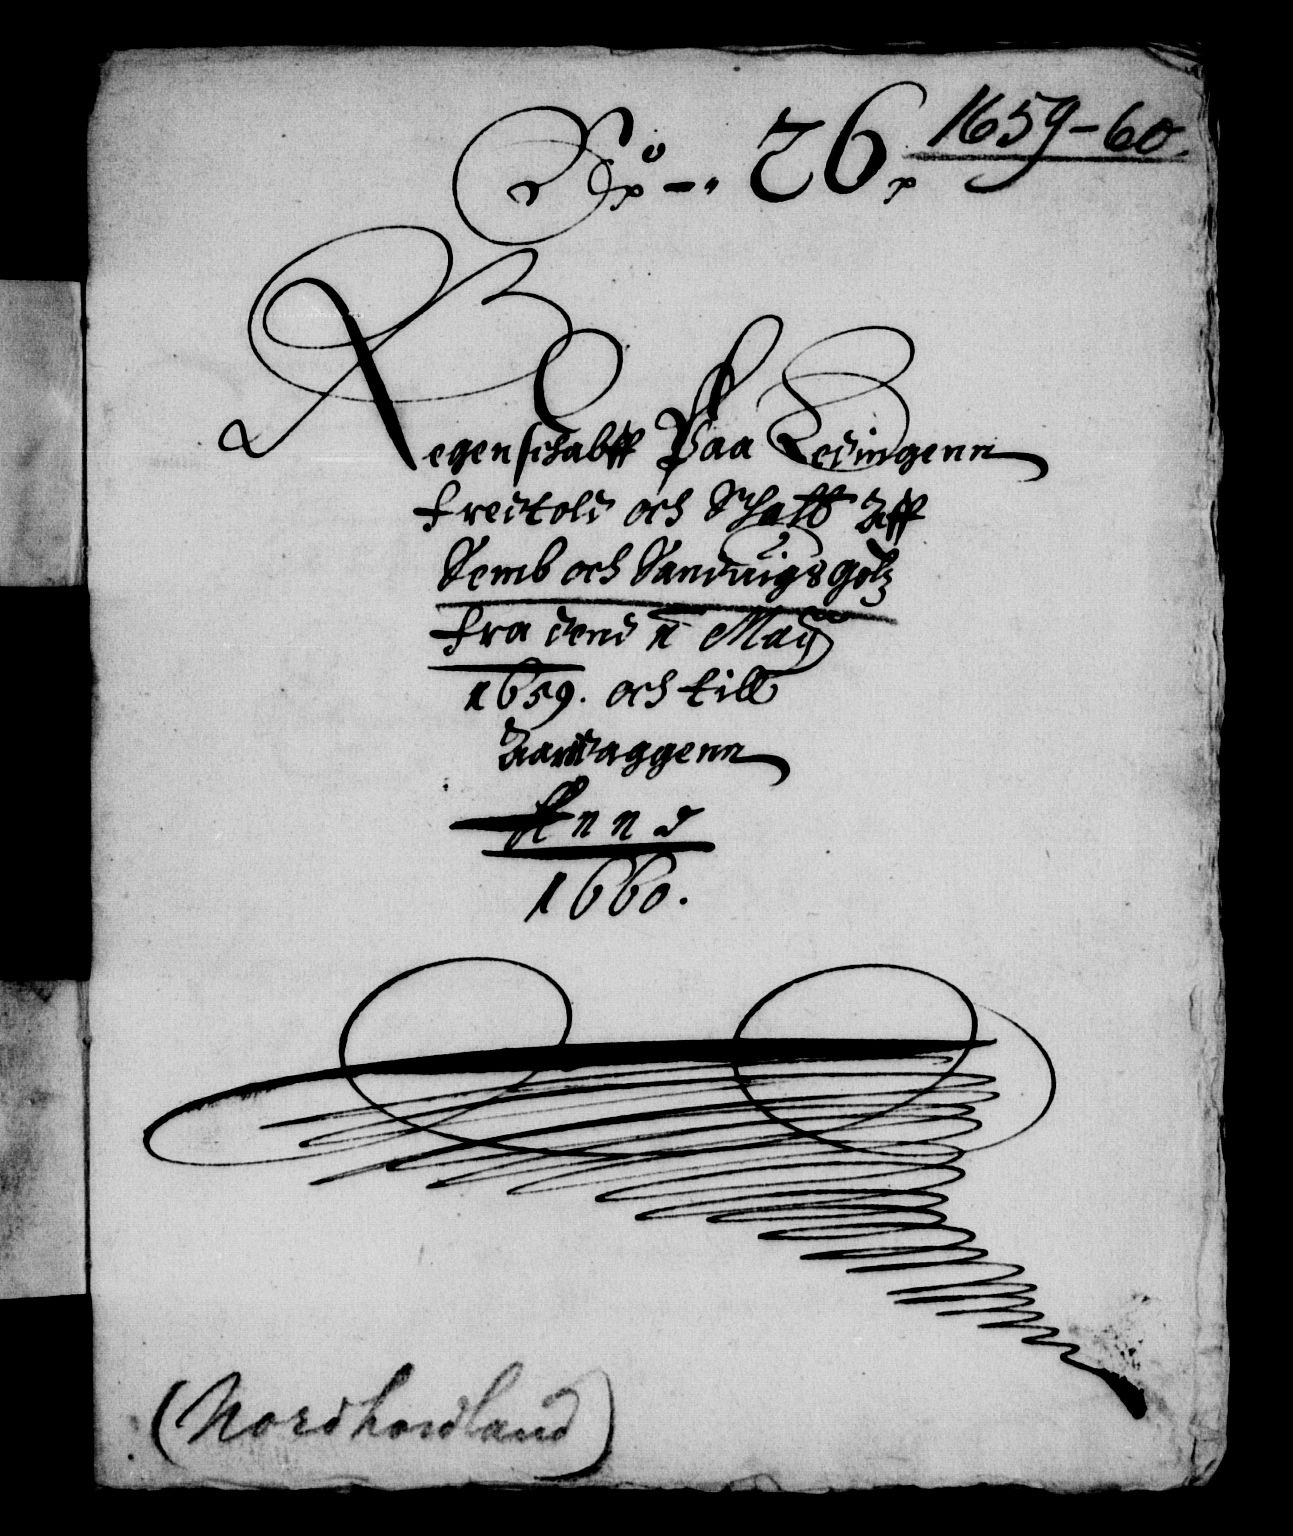 1659-60.
No -. 26.
Regenschabff Paa Ledingenn
Fredtold och Schatt Aff
Semb och Sanduigs Golz
Fra dend 1 May
1659. och till
Aardaggenn
Annd
1660.
(Nordhordland)